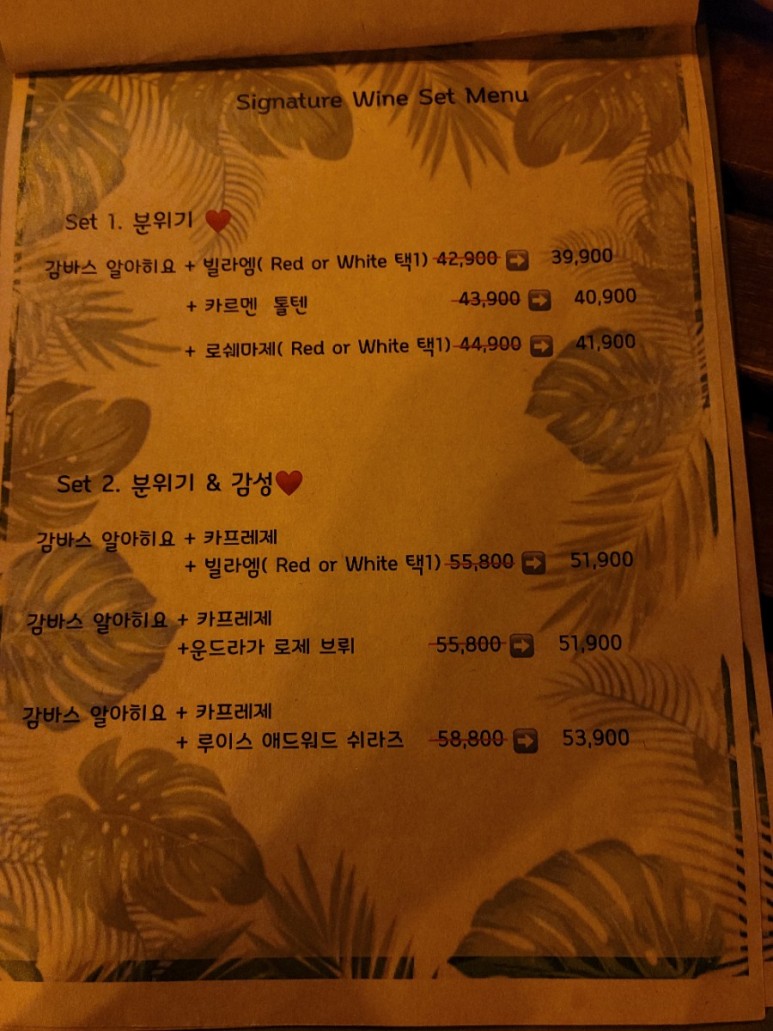 Signature Wine Set Menu
Set 1. 분위기 ❤️
감바스 알아히요 + 빌라엠( Red or White 택1) 42,900 ➡️ 39,900
+ 카르멘 톨텐 43,900 ➡️ 40,900
+ 로쉐마제( Red or White 택1) 44,900 ➡️ 41,900
Set 2. 분위기 & 감성❤️
감바스 알아히요 + 카프레제
+ 빌라엠( Red or White 택1) 55,800 ➡️ 51,900
감바스 알아히요 + 카프레제
+운드라가 로제 브뤼 55,800 ➡️ 51,900
감바스 알아히요 + 카프레제
+ 루이스 애드워드 쉬라즈 58,800 ➡️ 53,900